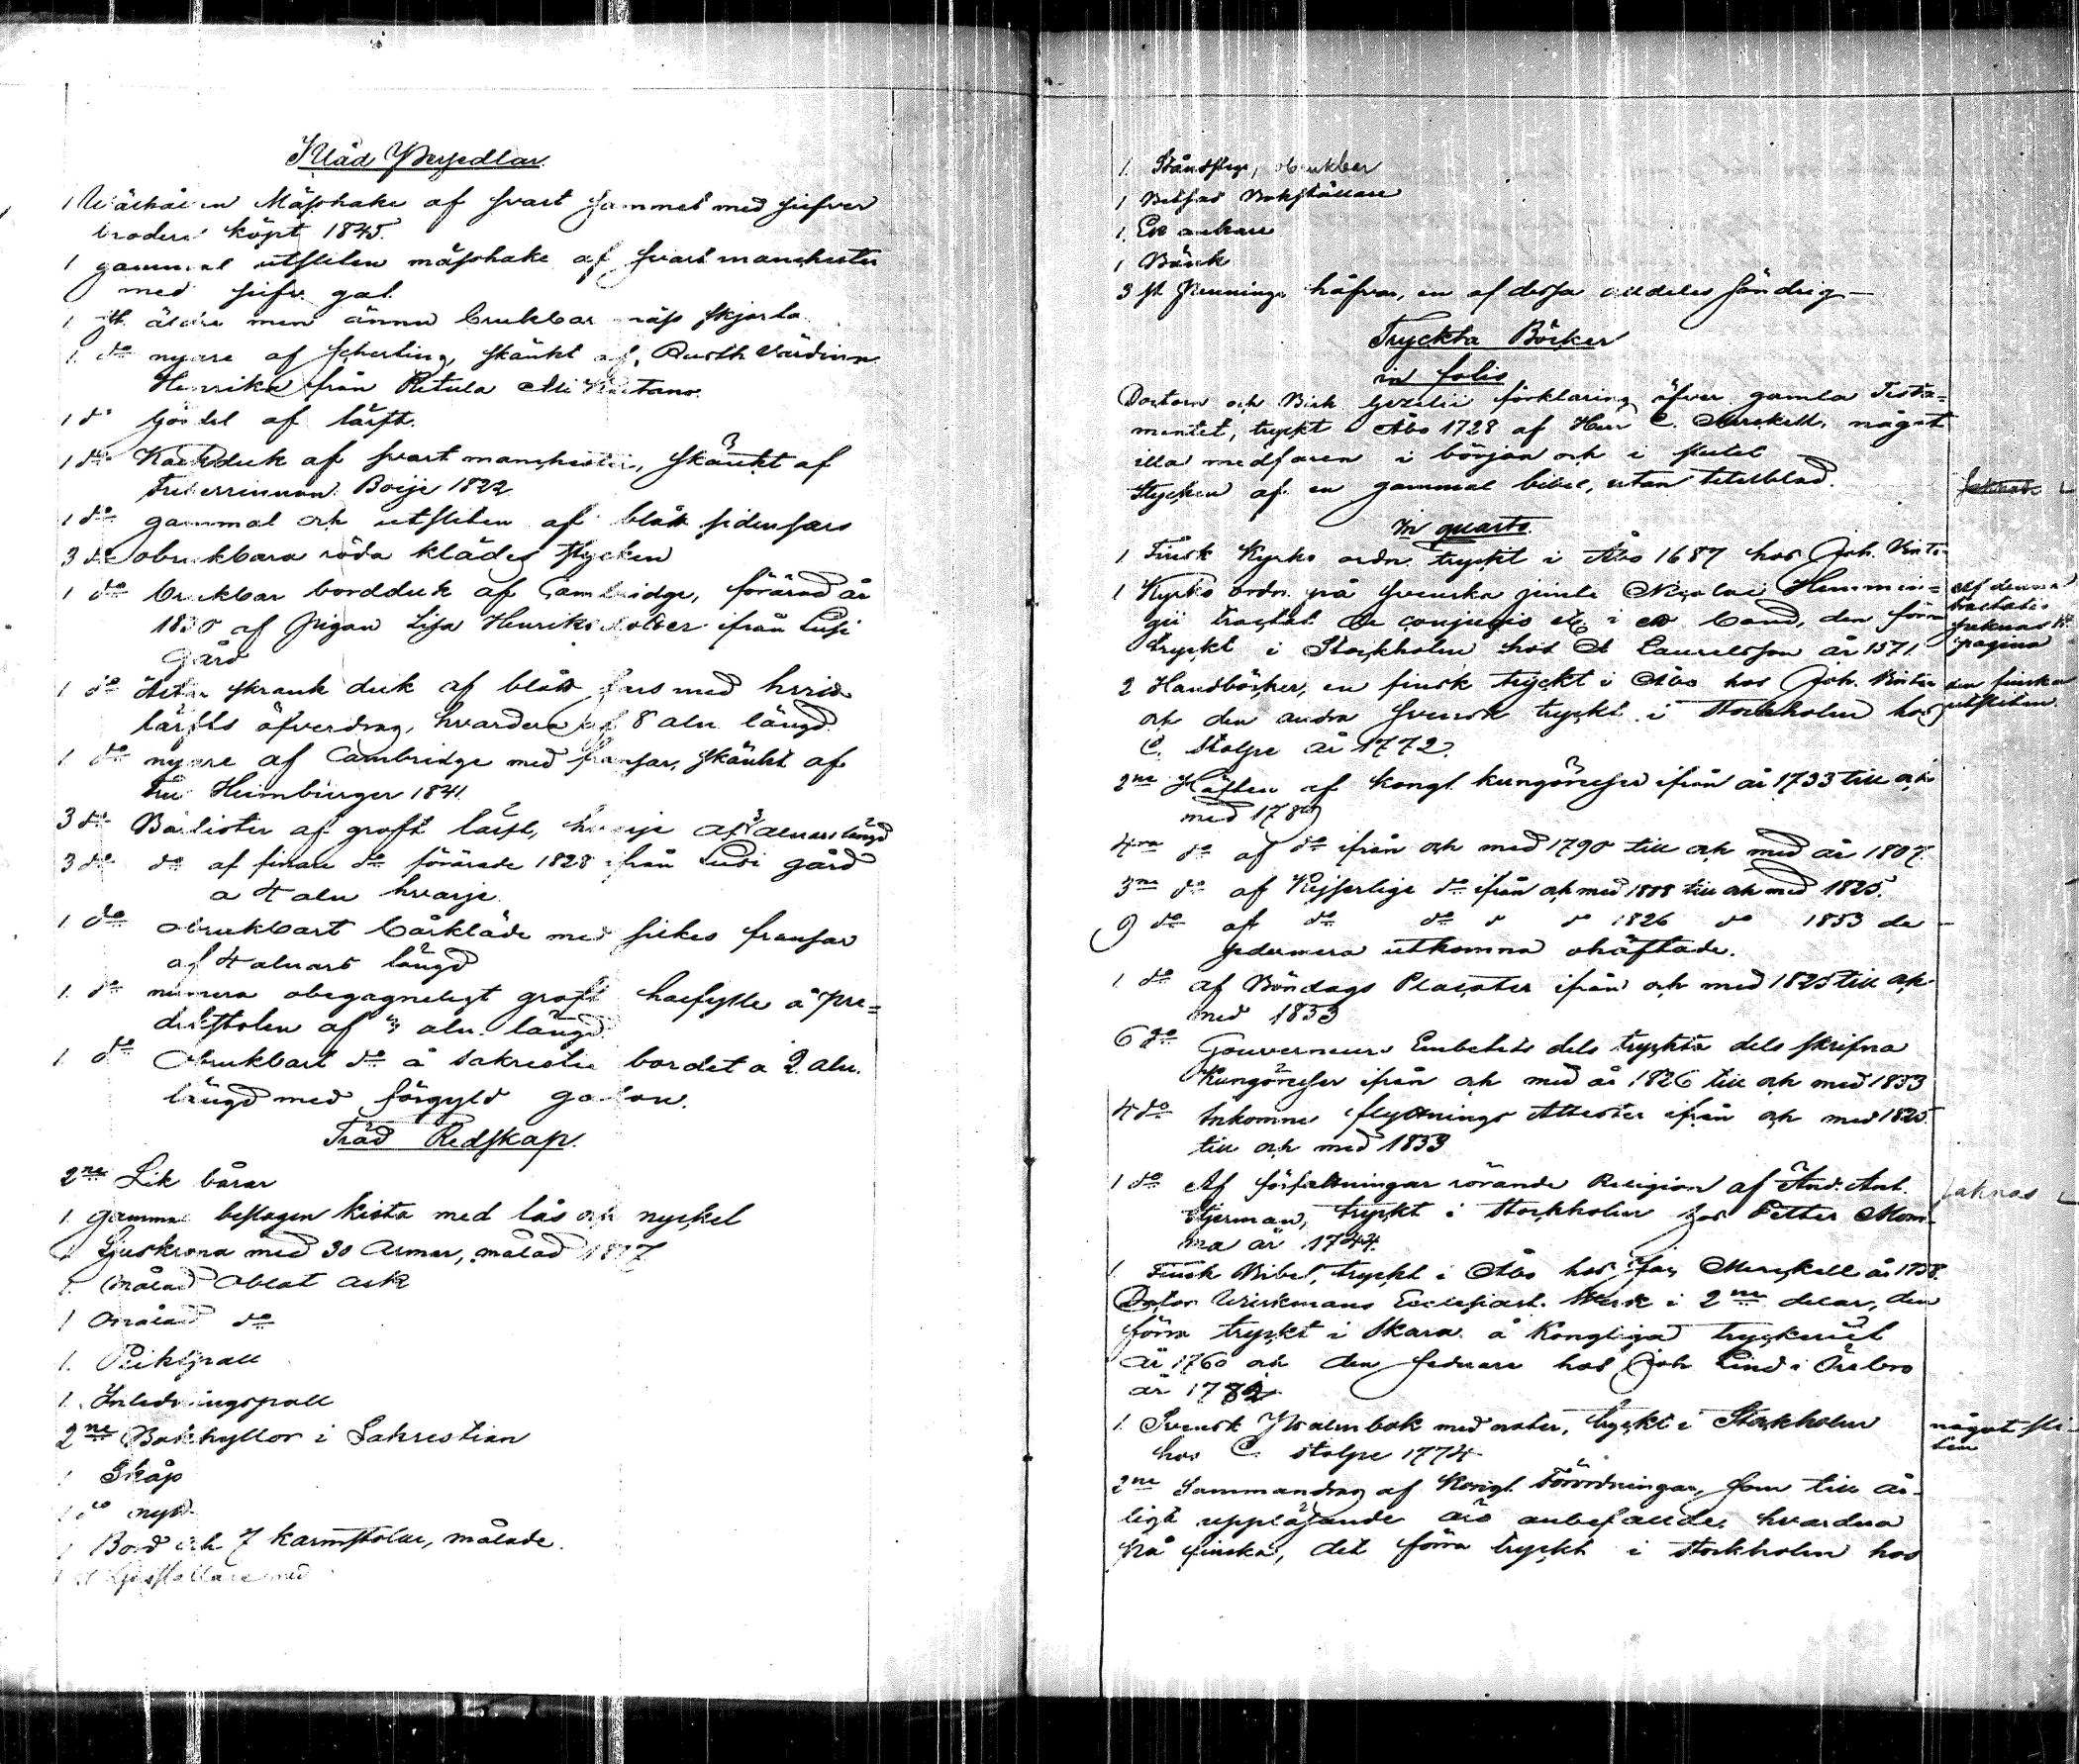 Kläd Persedlar.
1 Mässhake af svart sammet med silfver
broderi köpt 1845.
1 gammal utsliten mässhake af svart manchester
med silfv. gal.
1. st. äldre men ännu brukbar mäss skjorta
1. do nyare af scherting, skänkt af Rusth. Värdinn.
Henrika från Ritula
1 do Gördel af lärft.
1 do Kalkduk af svart manchester, skänkt af
Friherrinnan Boije 1822
1 do gammal och utsliten af blått sidensars
3 do obrukbara röda klädes stycken
1 do brukbar bordduk af Cambridge, förärad år
1830 af Pigan Lisa Henriksdotter ifrån Lusi
Gård
1 do skrank duk af blått sars med hvit
lärfts öfverdrag, hvardera af 8 aln. längd.
1 do nyare af Cambridge med fransar, skänkt af
Fru Heimbürger 1841.
3 do af groft lärft, hvarje af 3 alnars längd
3 do do af finare do förärade 1828 ifrån Lusi gård
a 4 aln hvarje.
1. do obrukbart bårkläde med silkes fransar
af 4 alnars längd
1. do numera obegagneligt groft å Pre=
dikstolen af 3 aln. längd.
1. do Obrukbart do å Sakristie bordet a 2 aln.
längd med förgyld galon.
Träd Redskap.
2ne Lik bårar
1. gammal beslagen kista med lås och nyckel
1 Ljuskrona med 30 Armar, målad
1. målad Oblat ask
1 Omålad do
1. pall
1. Inledningspall
2ne Bokhyllor i Sakrestian
1 Skåp
1 do nytt
1 Bord och 7 karmstolar, målade.
med
1. obrukbar
1 Bokställare
1. Ek ankare
1 Bänk
3 st. Pennings håfvar, en af dessa alldeles söndrig
Tryckta Böcker
in folio
Doctorn och Bisk. Gezelii förklaring öfver gamla Testa=
mentet, tryckt i Åbo 1728 af Herr Merckell, något
illa medfaren i början och i slutet
Stycken af en gammal bibel, utan titelblad.
In quarto.
1 Finsk Kyrko ordn. tryckt i Åbo 1687 hos Joh. Vinter
1 Kyrko ordn. på Svenska jemte Nicolai Hemmin=
gii tractat de conjugio etc. i ett band, den förra
tryckt i Stockholm hos A Laurelsson år 1571.
Af denna
tractatis
saknas 14
pagina
2 Handböcker, en finsk tryckt i Åbo hos Joh. Vinter
och den andra Svensk tryckt i Stockholm hos
C. Stolpe år 1772.
den finska
utsliten.
2ne Häften af Kongl. kungörelser ifrån år 1733 till och
med 1789
4ra do af do ifrån och med 1790 till och med år 1807.
3ne do af Kejserlige do ifrån och med 1808 till och med 1825.
9 do af do do do do 1826 do 1833 de
sedermera utkomna ohäftade.
1. do af Böndags Placater ifrån och med 1825 till och
med 1833
6 do Gouverneurs Embetets dels tryckta dels skrifna
Kungörelser ifrån och med år 1826 till och med 1833
4 do Inkomne flyttnings Attester ifrån och med 1825.
till och med 1833
1 do Af författningar rörande Religion af And. Ant.
Stjerman, tryckt i Stockholm hos Petter Mom=
ma år 1744.
saknas
1 Finsk Bibel, tryckt i Åbo hos Jac. Merckell år 1758.
Doctor Wiskmans Ecclesiast. Werk i 2ne delar, den
förra tryckt i Skara å Kongliga tryckeriet
år 1760 och den sednare hos Joh. Lind i Örebro
år 1782
1. Svensk Psalmbok med noter, tryckt i Stockholm
hos C. Stolpe 1774.
något sli=
ten
2ne Sammandrag af Kongl. Förordningar, som till år=
ligt uppläsande äro anbefallde, hvardera
på finska, det förra tryckt i Stockholm hos